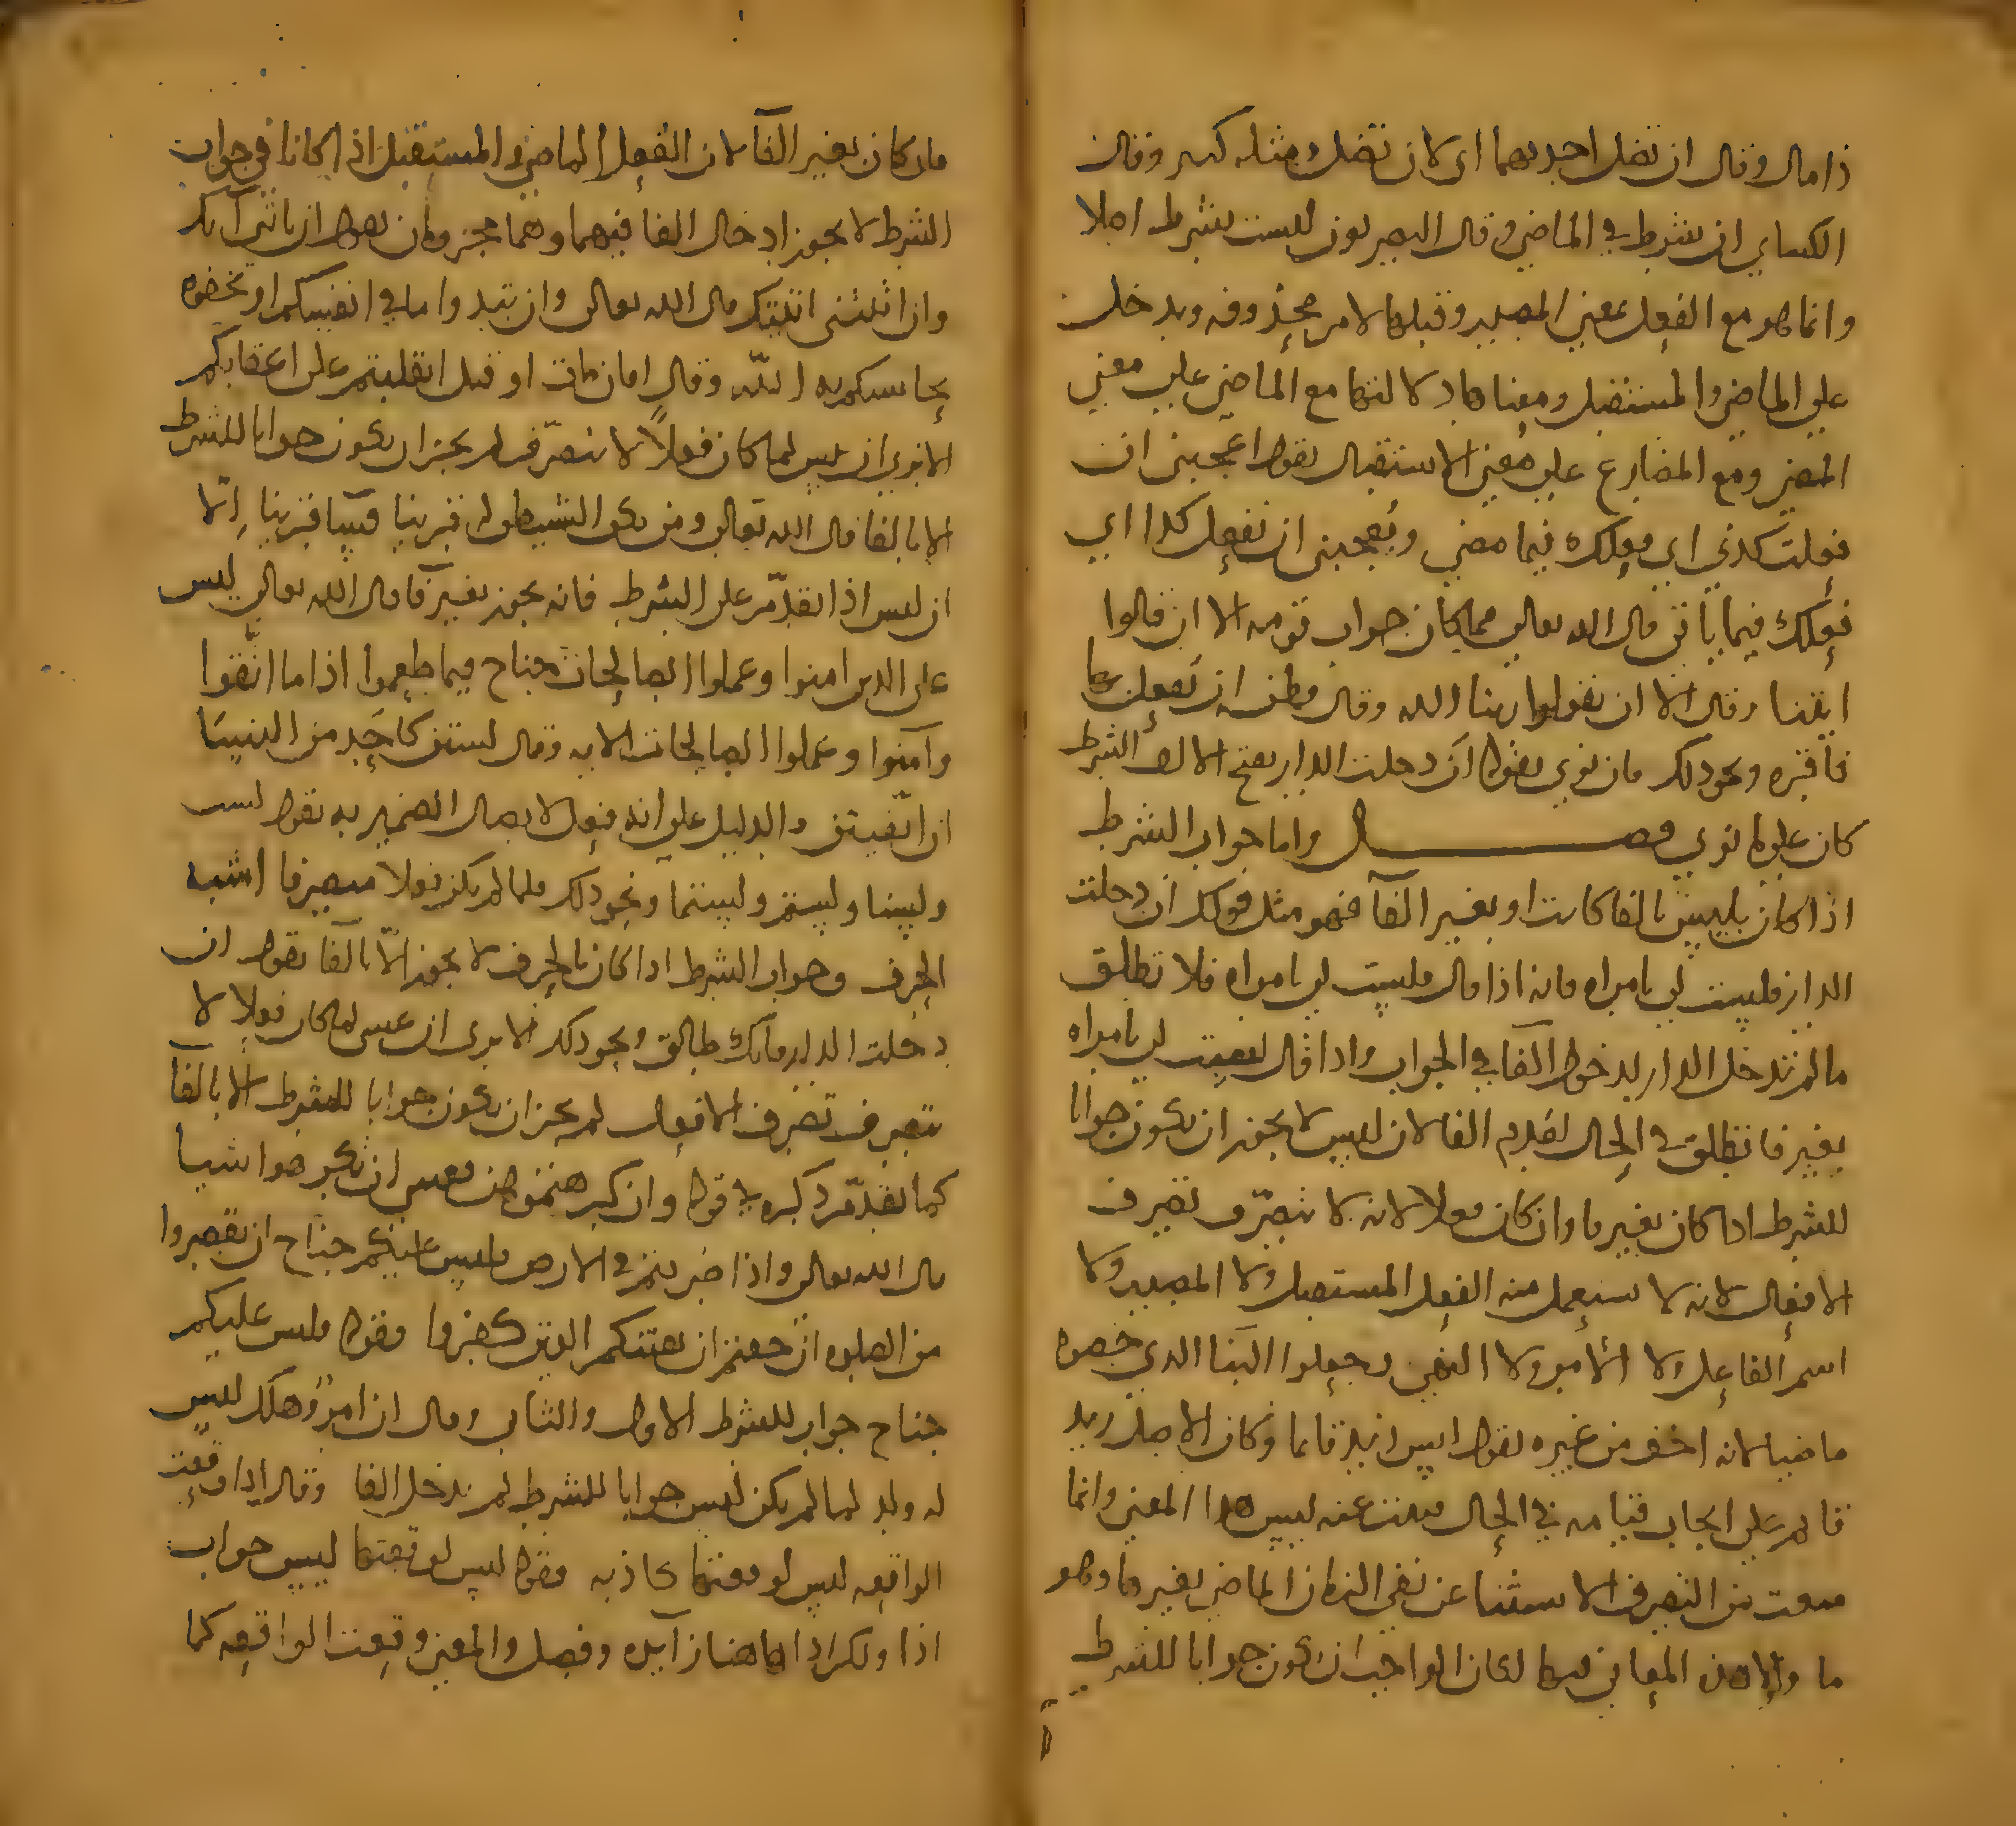 ذا مال وقال ان تضل احديهما اى لان تضل ومثله كثير وقال
الكساي ان بشرط في الماضي وقال البصريون ليست بشرط اصلا
وانما هو مع الفعل بمعنى المصدر وقبلها لام محذوفه ويدخل
علي الماضي والمستقبل ومعناها دلالتها مع الماضي علي معني
المضي ومع المضارع علي معني الاستقبال تقول اعجبني ان
فعلت كذي اي فعلك فيما مضي ويعجبني ان تفعل كدا اي
فعلك فيما ياتي قال الله تعالي فما كان جواب قومه الا ان قالوا
ايتنا وقال الا ان تقولوا ربنا الله وقال وظن ان يفعل بها
فاقره ونحو ذلك فان نوي بقوله ان دخلت الدار بفتح الالف الشرط
كان علي ما نوي فصل واما جواب الشرط
اذا كان بليس بالفا كانت او بغير الفآ فهو مثل قولك ان دخلت
الدار فليست لي بامراه فانه اذا قال فليست لي بامراه فلا تطلق
مالم تدخل الدار لدخول الفآ في الجواب واذا قال ليست لي بامراه
بغير فا تطلق في الحال لعدم الفا لان ليس لا يجوز ان يكون جوابا
للشرط اذا كان بغير فا وان كان فعلا لانه لا يتصرف تصرف
الافعال لانه لا يستعمل منه الفعل المستقبل ولا المصدر ولا
اسم الفاعل ولا الامر ولا النهي وجعلوا البنا الذي خصوه
ماضيا لانه اخف من غيره تقول ليس زيد قايما وكان الاصل زيد
قايم علي ايجاب قيامه في الحال فنفت عنه ليس هذا المعني وانما
منعت من التصرف الاستثنا عن نفي الزمان الماضي بغير ما وهو
ما ولا من المعاني فيها لكان الواجب ان يكون جوابا للشرط
فان كان بغير الفآ لان الفعل الماضي والمستقبل اذا كانا في جواب
الشرط لا يجوز ادخال الفا فيهما وهما مجزومان تقول ان تاتني آتك
وان اتيتني اتيتك قال الله تعالى وان تبدوا ما في انفسكم او تخفوه
يحاسبكم به الله وقال افان مات او قتل انقلبتم على اعقابكم
الا تري ان ليس لما كان فعلاً لا يتصرف لم يجز ان يكون جوابا للشرط
الا بالفا قال الله تعالي ومن يكن الشيطان له قرينا فسآ قرينا الا
ان ليس اذا تقدم على الشرط فانه يجوز بغير فآ قال الله تعالي ليس
على الذين امنوا وعملوا الصالحات جناح فيما طعموا اذا ما اتقوا
وآمنوا وعملوا الصالحات الايه وقال لستن كاحد من النسا
ان اتقيتن والدليل على انه فعل لاتصال الضمير به تقول لست
ولسنا ولستم ولستما ونحو ذلك فلما لم يكن فعلا متصرفا اشبه
الحرف وجواب الشرط اذا كان بالحرف لا يجوز الا بالفآ تقول ان
دخلت الدار فانك طالق ونحو ذلك الا ترى ان عسى لما كان فعلا لا
يتصرف تصرف الافعال لم يجز ان يكون جوابا للشرط الا بالفآ
كما تقدم ذكره في قوله وان كرهتموهن فعسى ان تكرهوا شيا
قال الله تعالى واذا ضربتم في الارض فليس عليكم جناح ان تقصروا
من الصلوه ان خفتم ان يفتنكم الذين كفروا فقوله فليس عليكم
جناح جواب للشرط الاول والثاني وقال ان امرؤ هلك ليس
له ولد لما لم يكن ليس جوابا للشرط لم يدخل الفا وقال اذا وقعت
الواقعه ليس لوقعتها كاذبه فقوله ليس لوقعتها ليس جواب
اذا ولكن اذا هاهنا زآيده وفصل والمعنى وقعت الواقعه كما